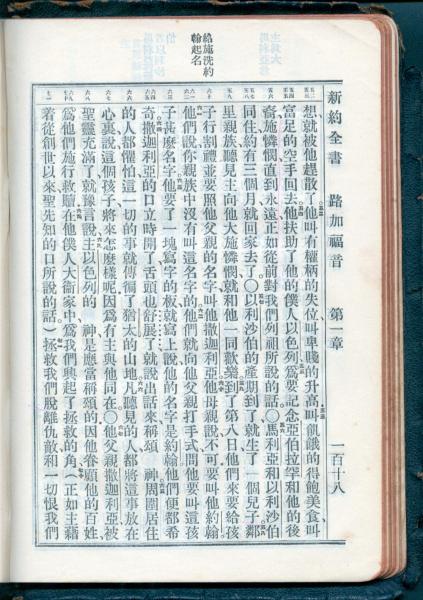 新約全書　路加福音　第一章　一百十八
想就被他趕散了他叫有權柄的失位叫卑賤的升高叫飢餓的得飽美食叫
富足的空手回去他扶助了他的僕人以色列爲要記念亞伯拉罕和他的後
裔施憐憫直到永遠正如從前對我們列祖所說的話〇馬利亞和以利沙伯
同住約有三個月就回家去了〇以利沙伯的產期到了就生了一個兒子鄰
里親族聽見主向他大施憐憫就和他一同歡樂到了第八日他們來要給孩
子行割禮並要照他父親的名字叫他撒迦利亞他母親說不可要叫他約翰
他們說你親族中沒有叫這名字的他們就向他父親打手式問他要叫這孩
子甚麼名字他要了一塊寫字的板就寫上說他的名字是約翰他們便都希
奇撒迦利亞的口立時開了舌頭也舒展了就說出話來稱頌　神周圍居住
的人都懼怕這一切的事就傳徧了猶太的山地凡聽見的人都將這事放在
心裏說這個孩子將來怎麼樣呢因爲有主與他同在〇他父親撒迦利亞被
聖靈充滿了就豫言說主以色列的　神是應當稱頌的因他眷顧他的百姓
爲他們施行救贖在他僕人大衞家中爲我們興起了拯救的角（正如主藉
着從創世以來聖先知的口所說的話）拯救我們脫離仇敵和一切恨我們
給施洗約
翰起名